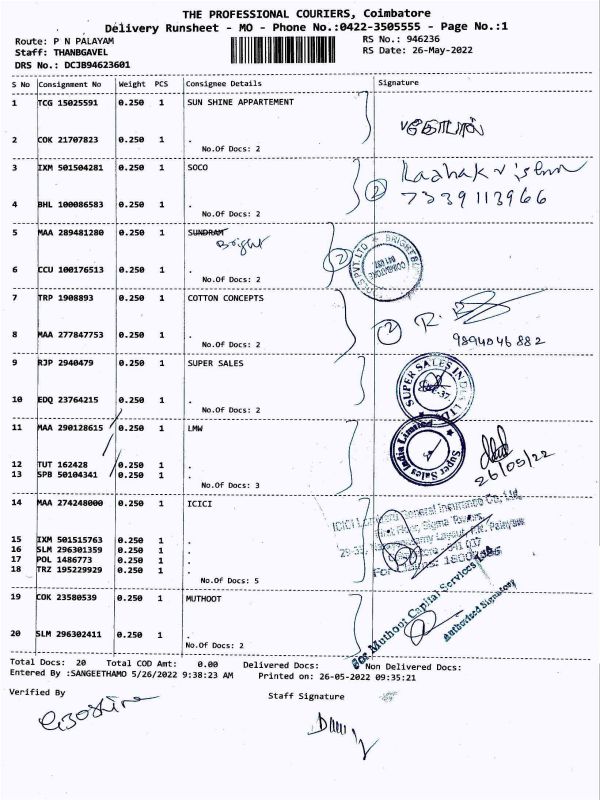 THE PROFESSIONAL COURIERS, Coimbatore
Delivery Runsheet - MO - Phone No.:0422-3505555 - Page No.:1
Route: P N PALAYAM
RS No.: 946236
Staff: THANBGAVEL
RS Date: 26-May-2022
DRS No.: DCJB94623601
S No Consignment No Weight PCS Consignee Details Signature
1 TCG 15025591 0.250 1 SUN SHINE APPARTEMENT
2 COK 21707823 0.250 1 .
No.Of Docs: 2
3 IXM 501504281 0.250 1 SOCO
Radhakrishnan
2 7339113966
4 BHL 100086583 0.250 1 .
No.Of Docs: 2
5 MAA 289481280 0.250 1 SUNDRAM
Bright
2
6 CCU 100176513 0.250 1 .
No.Of Docs: 2
7 TRP 1908893 0.250 1 COTTON CONCEPTS
2 R.
8 MAA 277847753 0.250 1 .
9894046882
No.Of Docs: 2
9 RJP 2940479 0.250 1 SUPER SALES
SUPER SALES INDIA LTD
10 EDQ 23764215 0.250 1 .
No.Of Docs: 2
11 MAA 290128615 0.250 1 LMW
Super Sales India Limited
12 TUT 162428 0.250 1 .
13 SPB 50104341 0.250 1 .
26/05/22
No.Of Docs: 3
14 MAA 274248000 0.250 1 ICICI
ICICI Lombard General Insurance Co. Ltd
15 IXM 501515763 0.250 1 .
16 SLM 296301359 0.250 1 .
17 POL 1486773 0.250 1 .
18 TRZ 195229929 0.250 1 .
No.Of Docs: 5
19 COK 23580539 0.250 1 MUTHOOT
For Muthoot Capital Services
Authorised Signatory
20 SLM 296302411 0.250 1 .
No.Of Docs: 2
Total Docs: 20 Total COD Amt: 0.00 Delivered Docs: Non Delivered Docs:
Entered By :SANGEETHAMO 5/26/2022 9:38:23 AM Printed on: 26-05-2022 09:35:21
Verified By
Staff Signature